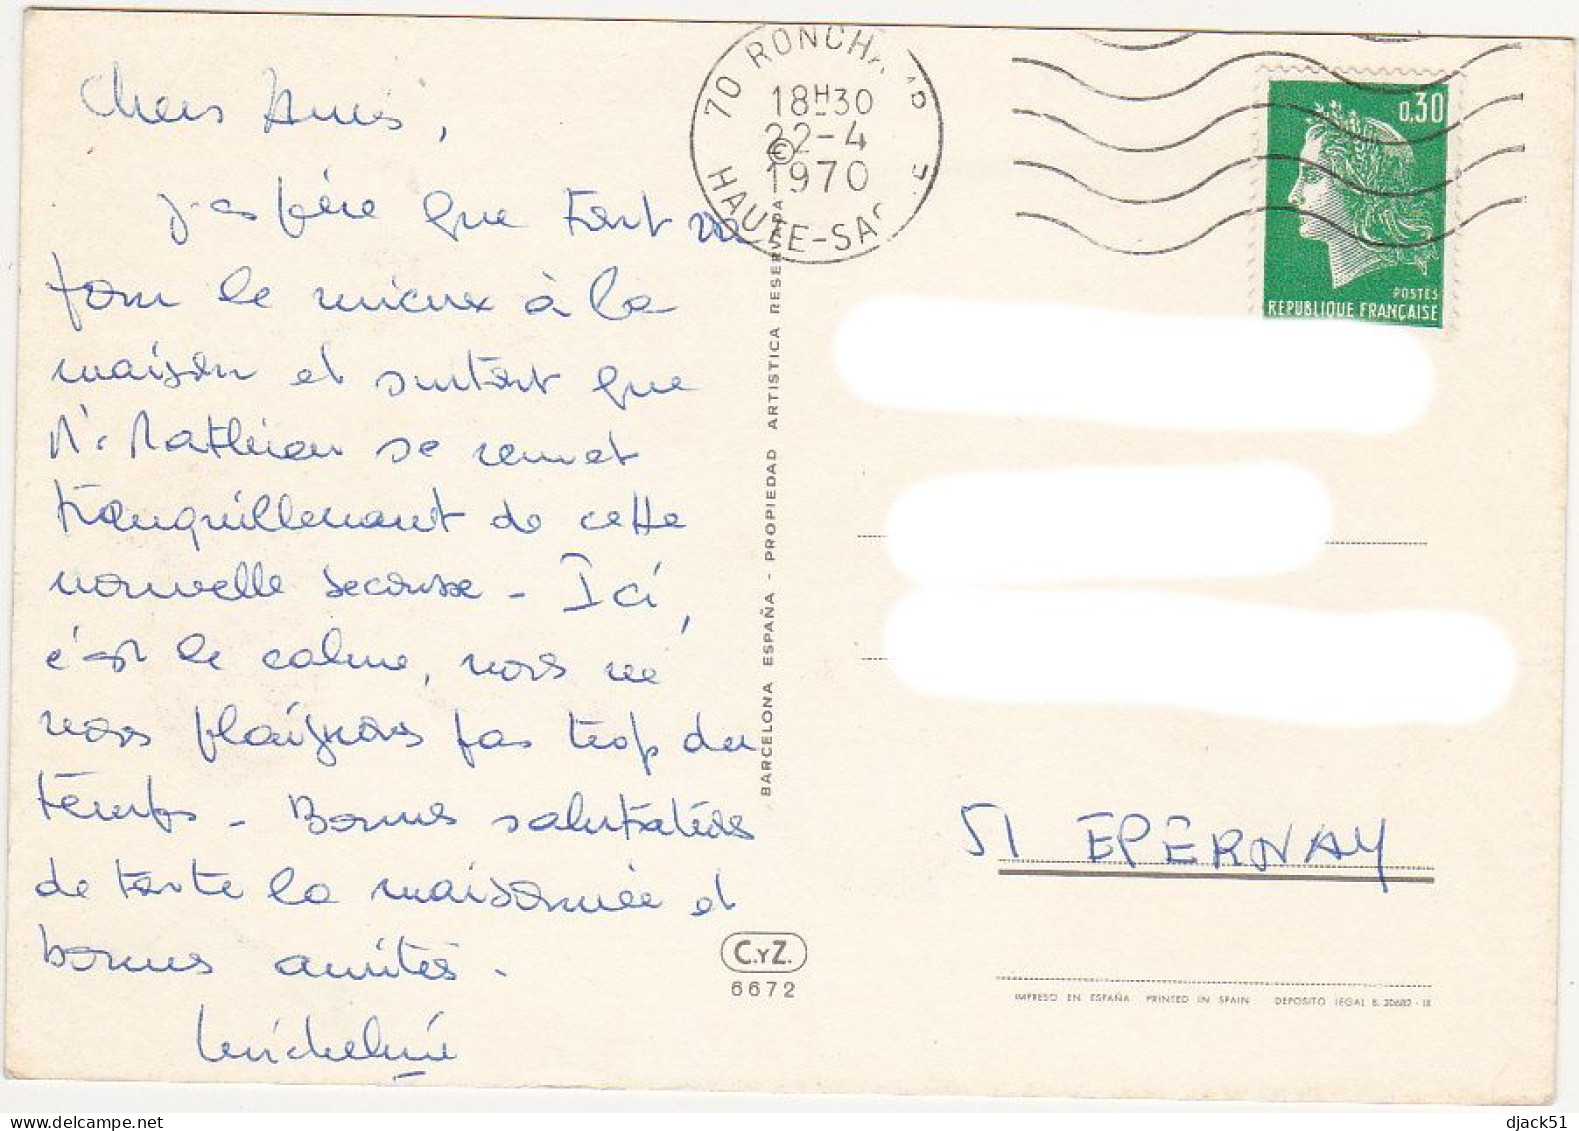 Chers Amis,
j'espère que tout va
pour le mieux à la
maison et surtout que
Mr Mathieu se remet
tranquillement de cette
nouvelle secousse - Ici,
c'est le calme, nous ne
nous plaignons pas trop du
temps - Bonnes salutations
de toute la maisonnée et
bonnes amitiés.
Micheline
70 RONCHAMP
18H30
22-4
1970
HAUTE-SAÔ
0,30
POSTES
REPUBLIQUE FRANÇAISE
BARCELONA ESPAÑA - PROPIEDAD ARTISTICA RESERVADA ©
51 EPERNAY
C.Y Z.
6672
IMPRESO EN ESPAÑA PRINTED IN SPAIN DEPOSITO LEGAL B. 20682 - IX
djack51